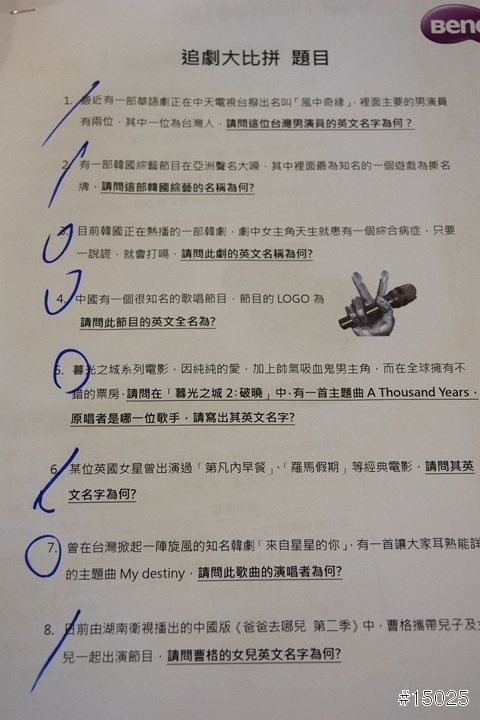 BenQ
追劇大比拼 題目
1. 最近有一部華語劇正在中天電視台撥出名叫「風中奇緣」，裡面主要的男演員
有兩位，其中一位為台灣人，請問這位台灣男演員的英文名字為何？
2. 有一部韓國綜藝節目在亞洲聲名大噪，其中裡面最為知名的一個遊戲為撕名
牌，請問這部韓國綜藝的名稱為何?
3. 目前韓國正在熱播的一部韓劇，劇中女主角天生就患有一個綜合病症，只要
一說謊，就會打嗝，請問此劇的英文名稱為何?
4. 中國有一個很知名的歌唱節目，節目的 LOGO 為
請問此節目的英文全名為?
5. 暮光之城系列電影，因純純的愛，加上帥氣吸血鬼男主角，而在全球擁有不
錯的票房，請問在「暮光之城 2：破曉」中，有一首主題曲 A Thousand Years，
原唱者是哪一位歌手，請寫出其英文名字?
6. 某位英國女星曾出演過「第凡內早餐」、「羅馬假期」等經典電影，請問其英
文名字為何?
7. 曾在台灣掀起一陣旋風的知名韓劇「來自星星的你」，有一首讓大家耳熟能詳
的主題曲 My destiny，請問此歌曲的演唱者為何?
8. 日前由湖南衛視播出的中國版《爸爸去哪兒 第二季》中，曹格攜帶兒子及女
兒一起出演節目，請問曹格的女兒英文名字為何?
#15025